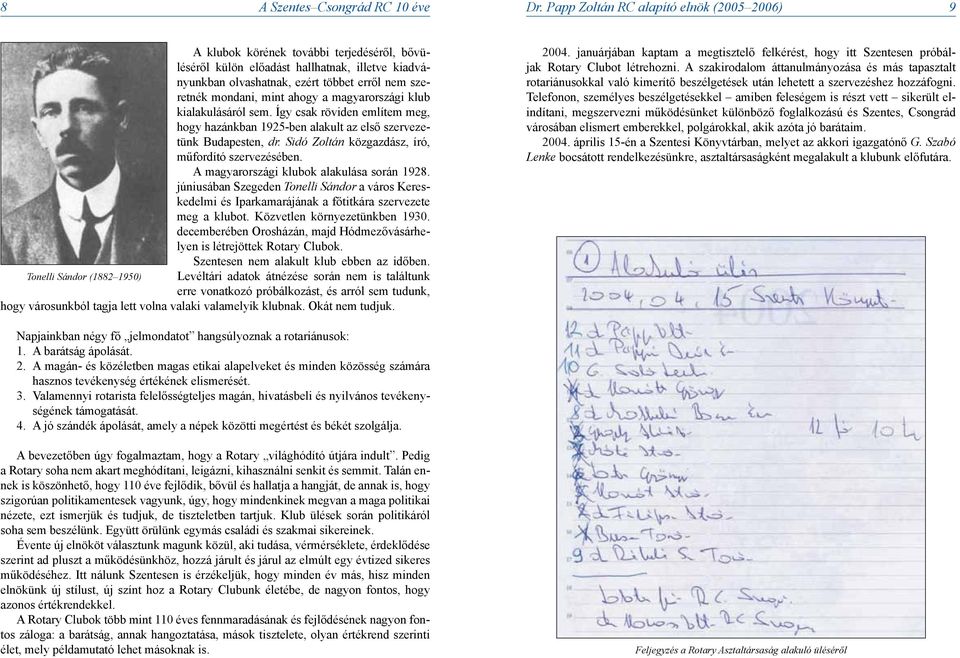 8 A Szentes–Csongrád RC 10 éve
A klubok körének további terjedéséről, bővü-
léséről külön előadást hallhatnak, illetve kiadvá-
nyunkban olvashatnak, ezért többet erről nem sze-
retnék mondani, mint ahogy a magyarországi klub
kialakulásáról sem. Így csak röviden említem meg,
hogy hazánkban 1925-ben alakult az első szerveze-
tünk Budapesten, dr. Sidó Zoltán közgazdász, író,
műfordító szervezésében.
A magyarországi klubok alakulása során 1928.
júniusában Szegeden Tonelli Sándor a város Keres-
kedelmi és Iparkamarájának a főtitkára szervezete
meg a klubot. Közvetlen környezetünkben 1930.
decemberében Orosházán, majd Hódmezővásárhe-
lyen is létrejöttek Rotary Clubok.
Szentesen nem alakult klub ebben az időben.
Levéltári adatok átnézése során nem is találtunk
erre vonatkozó próbálkozást, és arról sem tudunk,
hogy városunkból tagja lett volna valaki valamelyik klubnak. Okát nem tudjuk.
Tonelli Sándor (1882–1950)
Napjainkban négy fő „jelmondatot” hangsúlyoznak a rotariánusok:
1. A barátság ápolását.
2. A magán- és közéletben magas etikai alapelveket és minden közösség számára
hasznos tevékenység értékének elismerését.
3. Valamennyi rotarista felelősségteljes magán, hivatásbeli és nyilvános tevékeny-
ségének támogatását.
4. A jó szándék ápolását, amely a népek közötti megértést és békét szolgálja.
A bevezetőben úgy fogalmaztam, hogy a Rotary „világhódító útjára indult”. Pedig
a Rotary soha nem akart meghódítani, leigázni, kihasználni senkit és semmit. Talán en-
nek is köszönhető, hogy 110 éve fejlődik, bővül és hallatja a hangját, de annak is, hogy
szigorúan politikamentesek vagyunk, úgy, hogy mindenkinek megvan a maga politikai
nézete, ezt ismerjük és tudjuk, de tiszteletben tartjuk. Klub ülések során politikáról
soha sem beszélünk. Együtt örülünk egymás családi és szakmai sikereinek.
Évente új elnököt választunk magunk közül, aki tudása, vérmérséklete, érdeklődése
szerint ad pluszt a működésünkhöz, hozzá járult és járul az elmúlt egy évtized sikeres
működéséhez. Itt nálunk Szentesen is érzékeljük, hogy minden év más, hisz minden
elnökünk új stílust, új színt hoz a Rotary Clubunk életébe, de nagyon fontos, hogy
azonos értékrendekkel.
A Rotary Clubok több mint 110 éves fennmaradásának és fejlődésének nagyon fon-
tos záloga: a barátság, annak hangoztatása, mások tisztelete, olyan értékrend szerinti
élet, mely példamutató lehet másoknak is.
Dr. Papp Zoltán RC alapító elnök (2005–2006) 9
2004. januárjában kaptam a megtisztelő felkérést, hogy itt Szentesen próbál-
jak Rotary Clubot létrehozni. A szakirodalom áttanulmányozása és más tapasztalt
rotariánusokkal való kimerítő beszélgetések után lehetett a szervezéshez hozzáfogni.
Telefonon, személyes beszélgetésekkel – amiben feleségem is részt vett – sikerült el-
indítani, megszervezni működésünket különböző foglalkozású és Szentes, Csongrád
városában elismert emberekkel, polgárokkal, akik azóta jó barátaim.
2004. április 15-én a Szentesi Könyvtárban, melyet az akkori igazgatónő G. Szabó
Lenke bocsátott rendelkezésünkre, asztaltársaságként megalakult a klubunk előfutára.
1 Alakuló ülés
2004. 04. 15 Szentes
12 d Papp Zolt
11 d Papp
10 G.
12 fő 10 h
R.C. Szeged
R.C. Szeged
Feljegyzés a Rotary Asztaltársaság alakuló üléséről